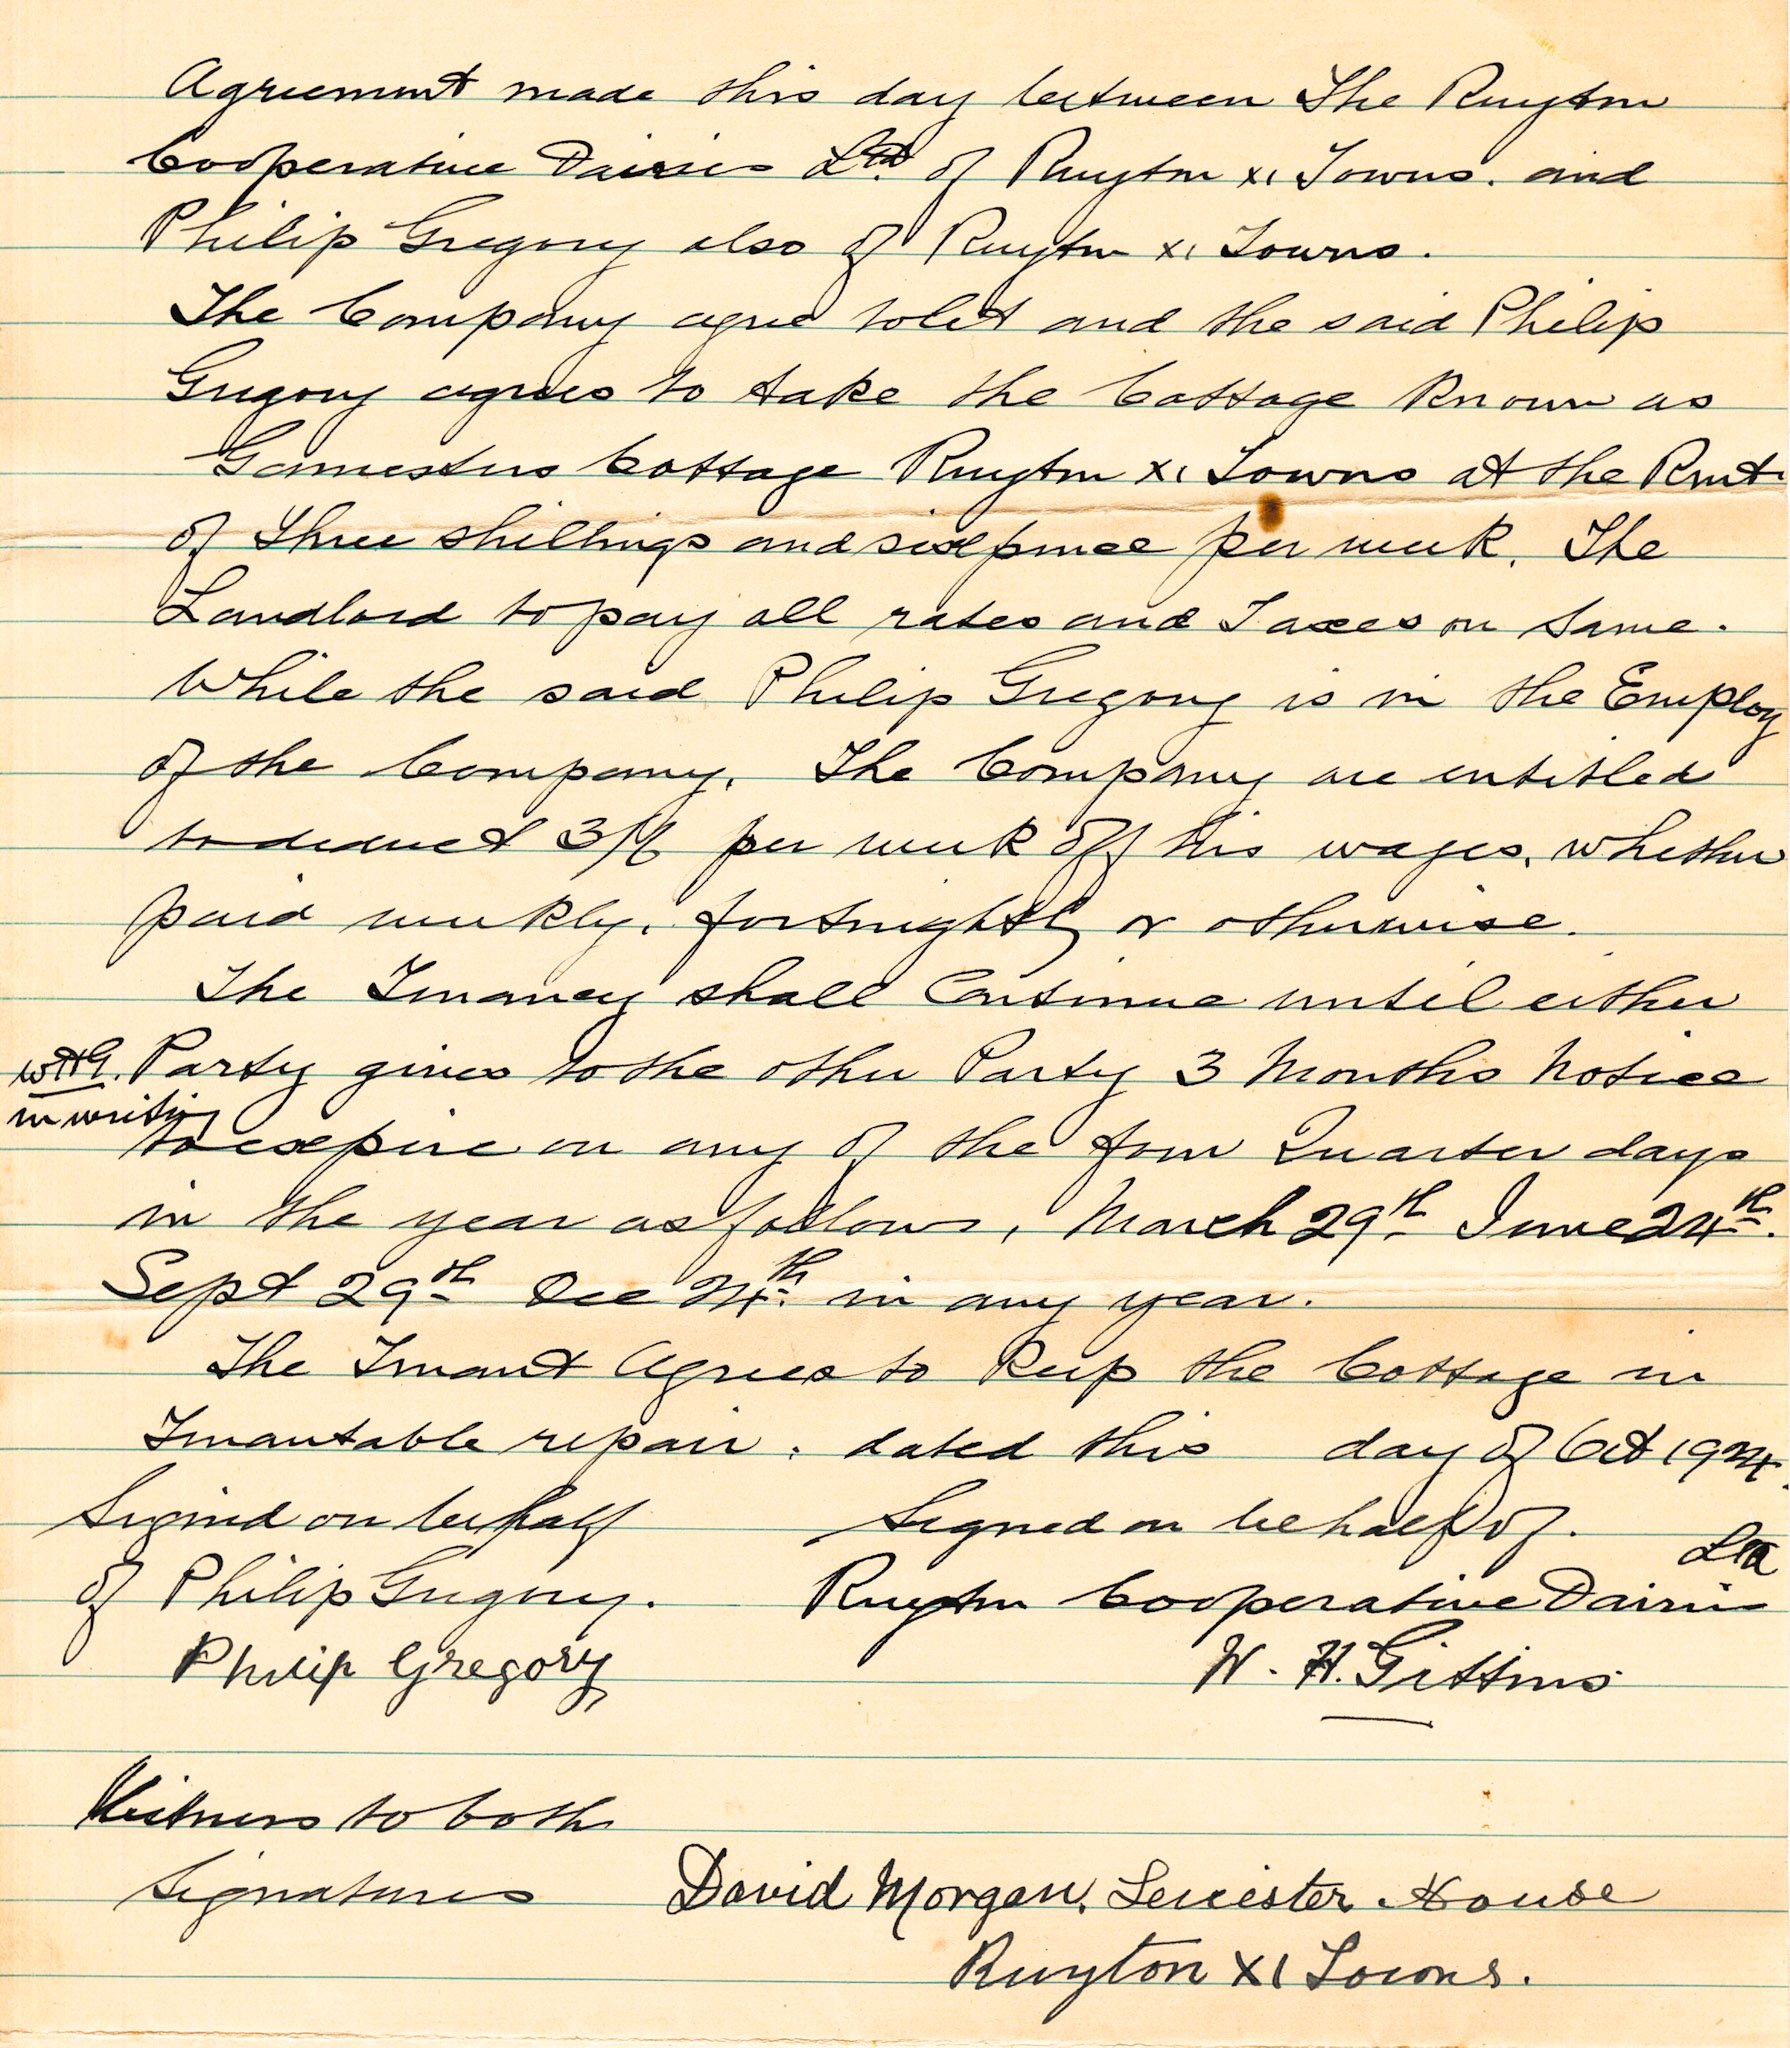 Agreement made this day between The Ruyton
Cooperative Dairies Ltd. of Ruyton XI Towns. and
Philip Gregory also of Ruyton XI Towns.
The Company agree to let and the said Philip
Gregory agrees to take the Cottage Known as
Cottage Ruyton XI Towns at the Rent
of three shillings and sixpence per week. The
Landlord to pay all rates and Taxes on same.
While the said Philip Gregory is in the Employ
of the Company. The Company are entitled
to deduct 3/6 per week off his wages, whether
paid weekly, fortnightly or otherwise.
The Tenancy shall Continue until either
WHG. Party gives to the other Party 3 Months Notice
in writing
to expire on any of the four Quarter days
in the year as follows, March 29th June 24th.
Sept 29th Dec 24th. in any year.
The Tenant Agrees to Keep the Cottage in
Tenantable repair. dated this day of Oct 1924.
Signed on behalf
of Philip Gregory.
Philip Gregory
Signed on behalf of.
Ruyton Cooperative Dairies Ltd
W. H. Gittins
Witness to both
Signatures
David Morgan, Leicester House
Ruyton XI Towns.